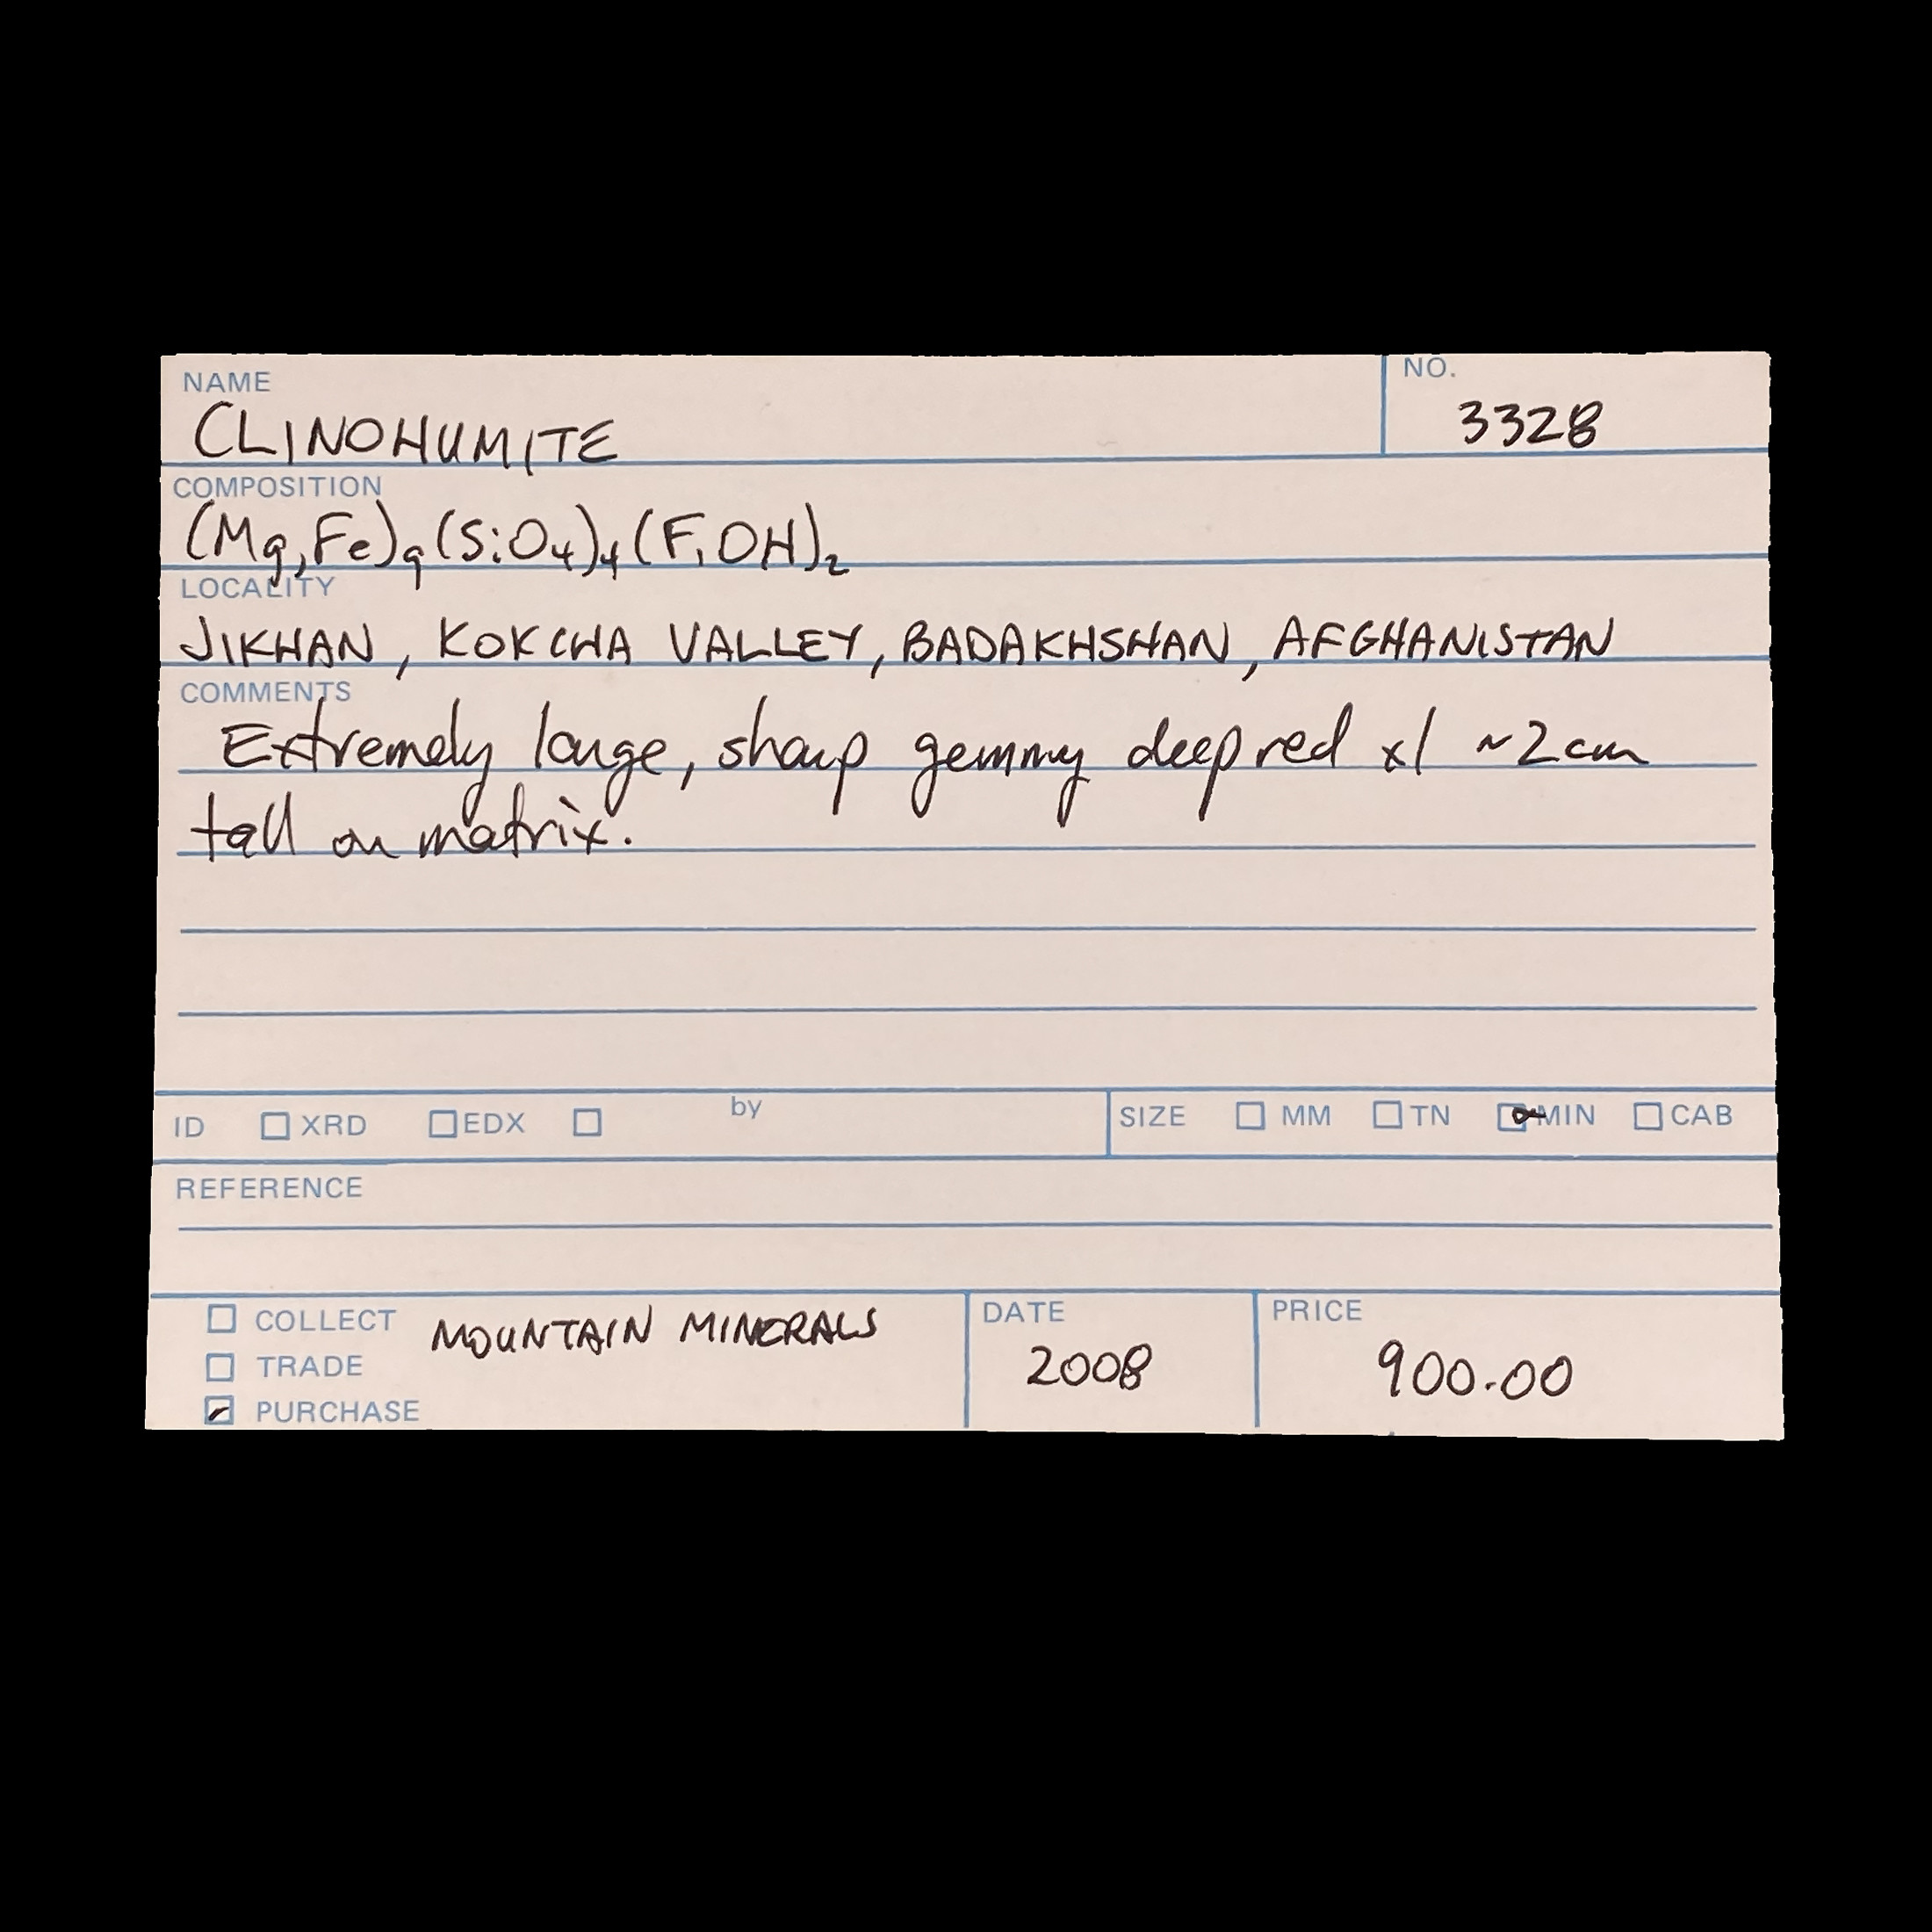 NAME NO.
CLINOHUMITE 3328
COMPOSITION
(Mg,Fe)₉(SiO₄)₄(F,OH)₂
LOCALITY
JIKHAN, KOKCHA VALLEY, BADAKHSHAN, AFGHANISTAN
COMMENTS
Extremely large, sharp gemmy deep red xl ~2cm
tall on matrix.
ID ☐ XRD ☐ EDX ☐ by SIZE ☐ MM ☐ TN ☑ MIN ☐ CAB
REFERENCE
☐ COLLECT MOUNTAIN MINERALS DATE PRICE
☐ TRADE 2008 900.00
☑ PURCHASE